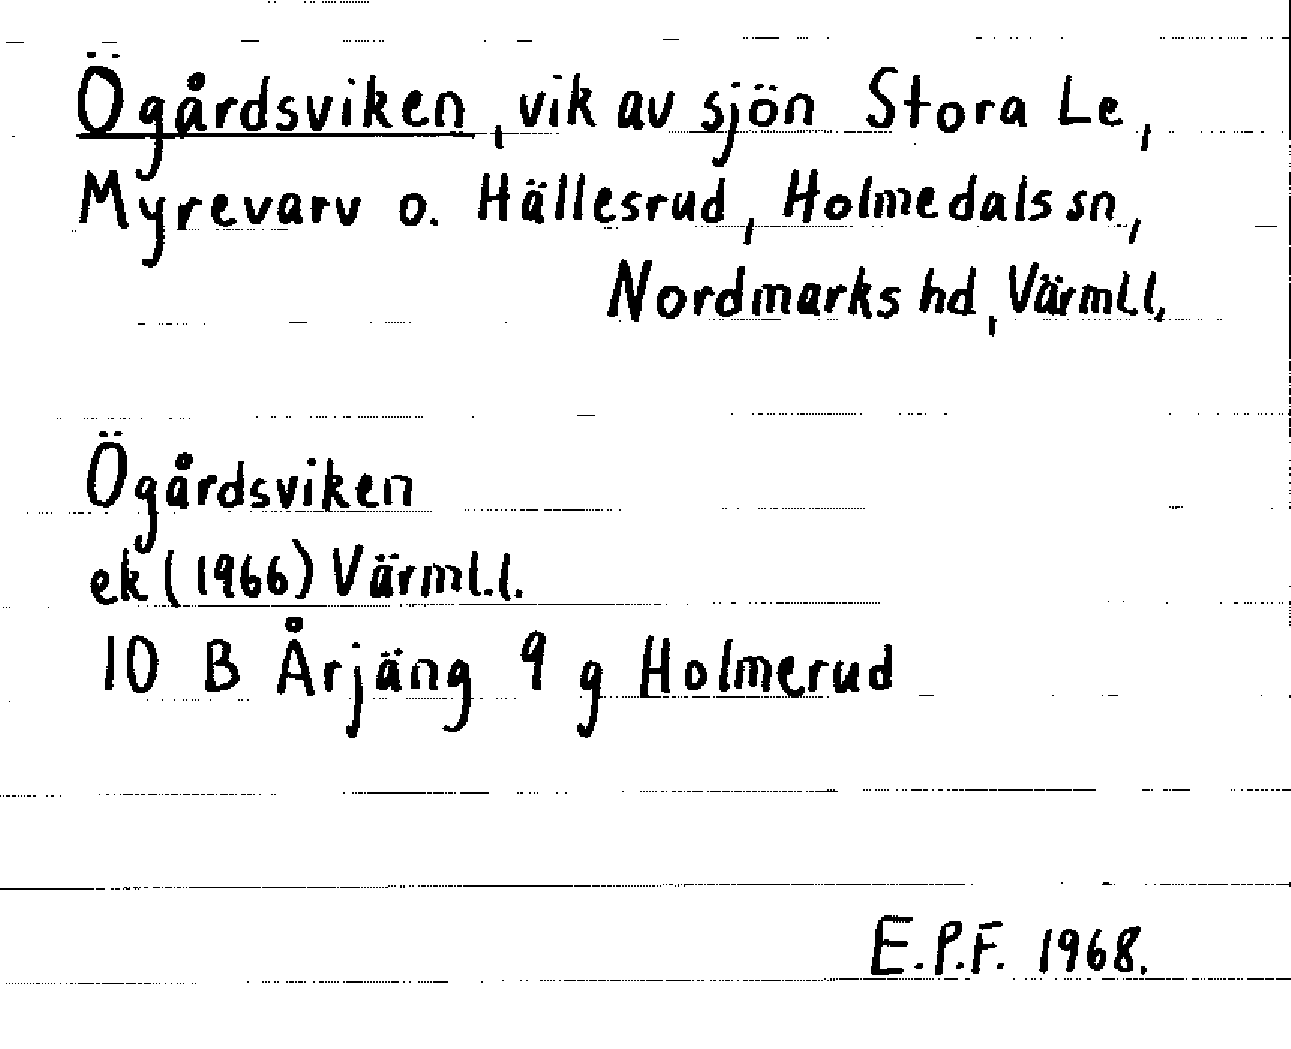 Ögårdsviken, vik av sjön Stora Le,
Myrevarv o. Hällesrud, Holmedals sn,
Nordmarks hd, Värml.l.
Ögårdsviken
ek (1966) Värml.l.
10 B Årjäng 9 g Holmerud
E.P.F. 1968.